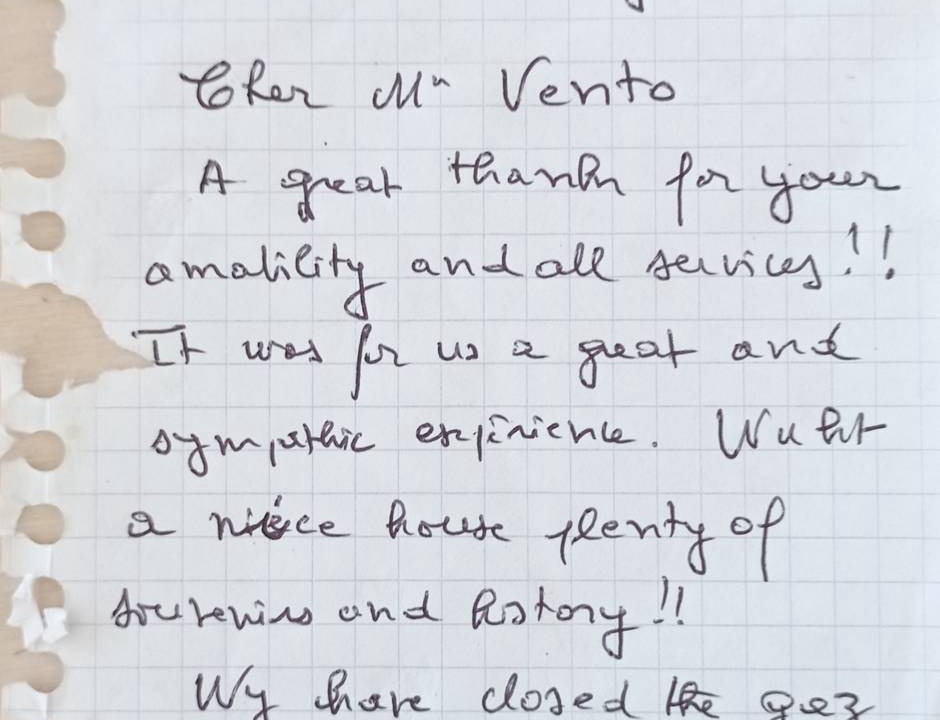 Cher Mr Vento
A great thanks for your
amability and all services!!
It was for us a great and
sympathic expérience. Waht
a niéce house plenty of
souvenirs and history!!
Wy have closed the gaz